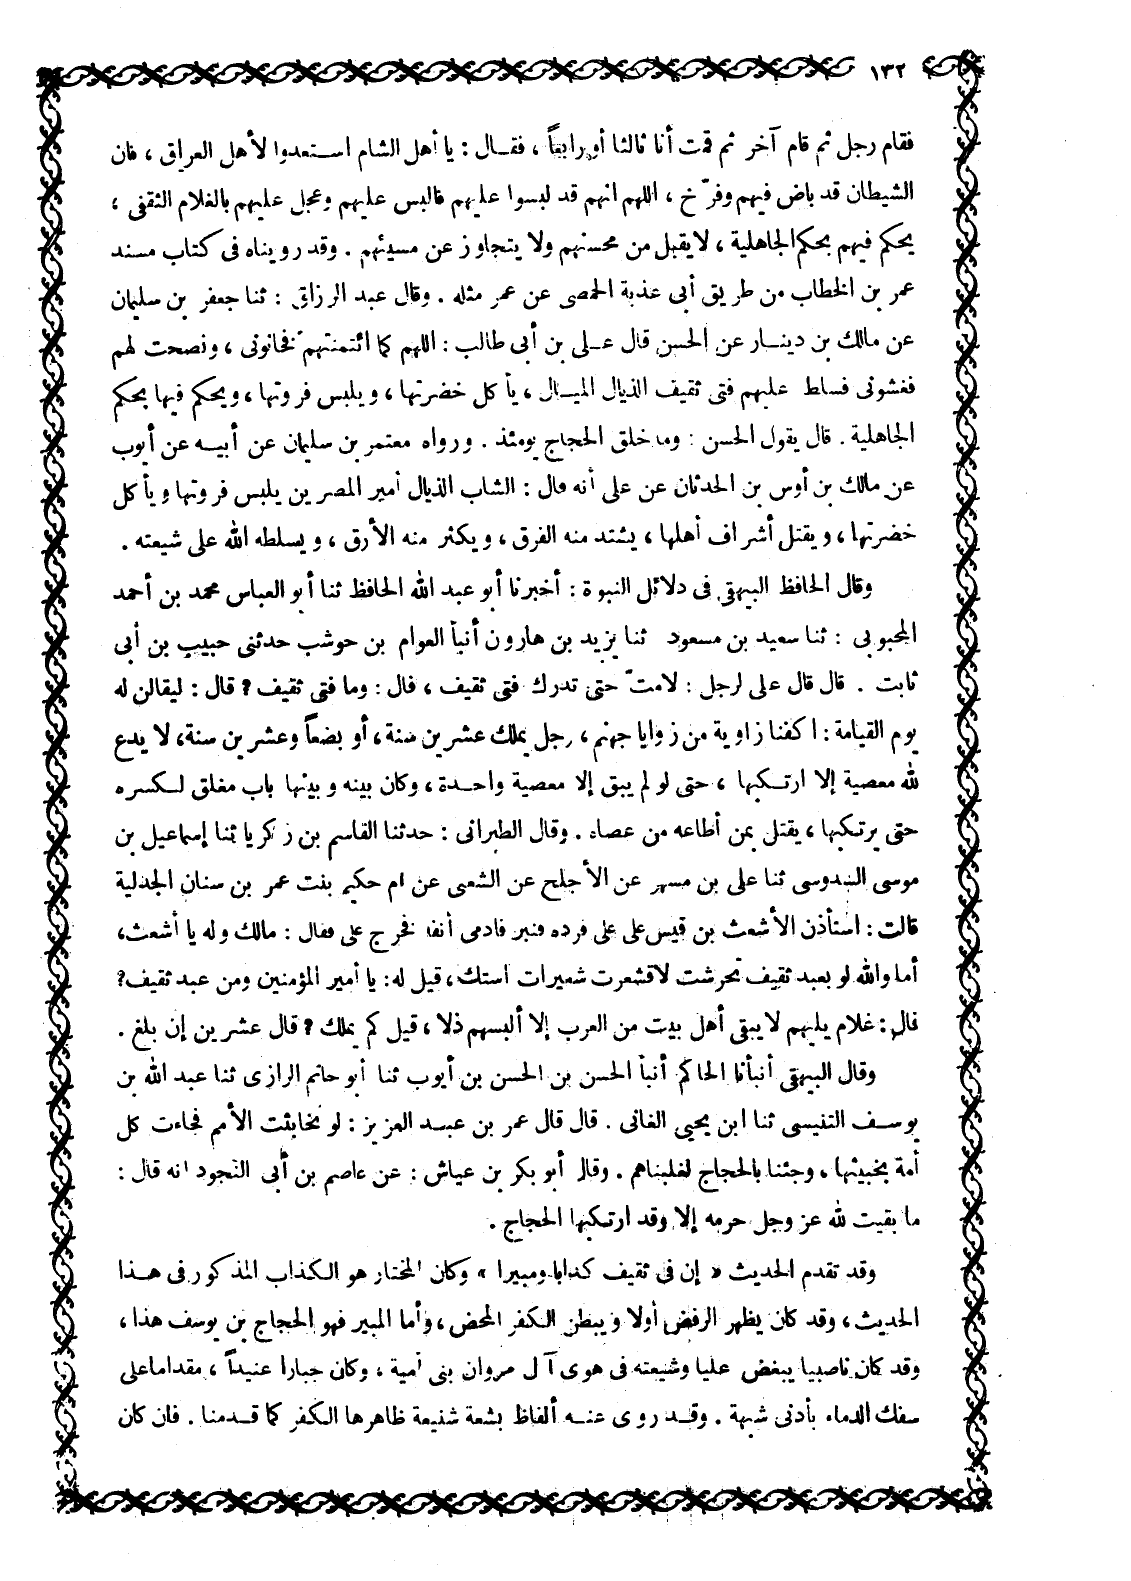 ١٣٢
فقام رجل ثم قام آخر ثم قمت أنا ثالثا أو رابعاً ، فقال : يا أهل الشام استعدوا لأهل العراق ، فان
الشيطان قد باض فيهم وفرّخ ، اللهم انهم قد لبسوا عليهم فالبس عليهم وعجل عليهم بالغلام الثقفى ،
يحكم فيهم بحكم الجاهلية ، لا يقبل من محسنهم ولا يتجاوز عن مسيئهم . وقد رويناه فى كتاب مسند
عمر بن الخطاب من طريق أبى عذبة الحمصى عن عمر مثله . وقال عبد الرزاق : ثنا جعفر بن سليمان
عن مالك بن دينار عن الحسن قال على بن أبى طالب : اللهم كما ائتمنتهم فخانونى ، ونصحت لهم
فغشونى فسلط عليهم فتى ثقيف الذيال الميال ، يأكل خضرتها ، ويلبس فروتها ، ويحكم فيها بحكم
الجاهلية . قال يقول الحسن : وما خلق الحجاج يومئذ . ورواه معتمر بن سليمان عن أبيه عن أيوب
عن مالك بن أوس بن الحدثان عن على أنه قال : الشاب الذيال أمير المصرين يلبس فروتها ويأكل
خضرتها ، ويقتل أشراف أهلها ، يشتد منه الفرق ، ويكثر منه الأرق ، ويسلطه الله على شيعته .
وقال الحافظ البيهقى فى دلائل النبوة : أخبرنا أبو عبد الله الحافظ ثنا أبو العباس محمد بن أحمد
المحبوبى : ثنا سعيد بن مسعود ثنا يزيد بن هارون أنبأ العوام بن حوشب حدثنى حبيب بن أبى
ثابت . قال قال على لرجل : لامتّ حتى تدرك فتى ثقيف ، قال : وما فتى ثقيف ؟ قال : ليقالن له
يوم القيامة : اكفنا زاوية من زوايا جهنم ، رجل يملك عشرين سنة ، أو بضعاً وعشرين سنة ، لا يدع
لله معصية إلا ارتكبها ، حتى لو لم يبق إلا معصية واحدة ، وكان بينه وبينها باب مغلق لكسره
حتى يرتكبها ، يقتل بمن أطاعه من عصاه . وقال الطبرانى : حدثنا القاسم بن زكريا ثنا إسماعيل بن
موسى السدوسى ثنا على بن مسهر عن الأجلح عن الشعبى عن ام حكيم بنت عمر بن سنان الجدلية
قالت : استأذن الأشعث بن قيس على على فرده قنبر فادمى أنفه فخرج على فقال : مالك وله يا أشعث ،
أما والله لو بعبد ثقيف تحرشت لاقشعرت شعيرات استك ، قيل له : يا أمير المؤمنين ومن عبد ثقيف ؟
قال : غلام يليهم لا يبقى أهل بيت من العرب إلا ألبسهم ذلا ، قيل كم يملك ؟ قال عشرين إن بلغ .
وقال البيهقى أنبأنا الحاكم أنبأ الحسن بن الحسن بن أيوب ثنا أبو حاتم الرازى ثنا عبد الله بن
يوسف التنيسى ثنا ابن يحيى الغانى . قال قال عمر بن عبد العزيز : لو تخابثت الأمم فجاءت كل
أمة بخبيثها ، وجئنا بالحجاج لغلبناهم . وقال أبو بكر بن عياش : عن عاصم بن أبى النجود انه قال :
ما بقيت لله عز وجل حرمه إلا وقد ارتكبها الحجاج .
وقد تقدم الحديث « إن فى ثقيف كذابا ومبيرا » وكان المختار هو الكذاب المذكور فى هذا
الحديث ، وقد كان يظهر الرفض أولا ويبطن الكفر المحض ، وأما المبير فهو الحجاج بن يوسف هذا ،
وقد كان ناصبيا يبغض عليا وشيعته فى هوى آل مروان بنى أمية ، وكان جبارا عنيداً ، مقداما على
سفك الدماء بأدنى شبهة . وقد روى عنه ألفاظ بشعة شنيعة ظاهرها الكفر كما قدمنا . فان كان